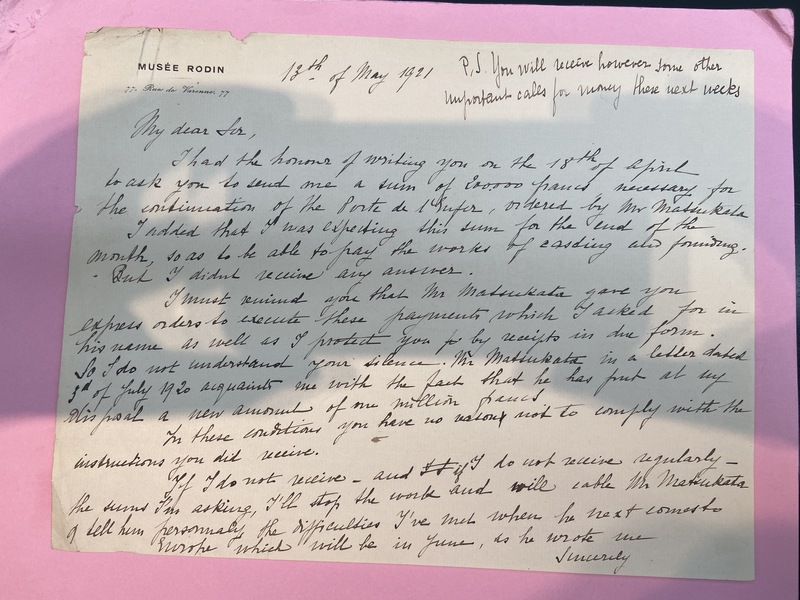 MUSÉE RODIN
77, Rue de Varenne, 77
13th of May 1921
P.S. You will receive however some other
important calls for money these next weeks
My dear Sir,
I had the honour of writing you on the 18th of April
to ask you to send me a sum of 200000 francs necessary for
the continuation of the Porte de l'Enfer, ordered by Mr Matsukata
I added that I was expecting this sum for the end of the
month, so as to be able to pay the works of casting and founding.
- But I didnt receive any answer.
I must remind you that Mr Matsukata gave you
express orders to execute these payments which I asked for in
his name as well as I protect you by receipts in due form.
So I do not understand your silence. Mr Matsukata in a letter dated
3d of July 1920 acquaints me with the fact that he has put at my
disposal a new amount of one million francs
In these conditions you have no reason not to comply with the
instructions you did receive.
If I do not receive - and if I do not receive regularly -
the sums I'm asking, I'll stop the work and will cable Mr Matsukata
& tell him personaly the difficulties I've met when he next comes to
Europe which will be in June, as he wrote me
Sincerely